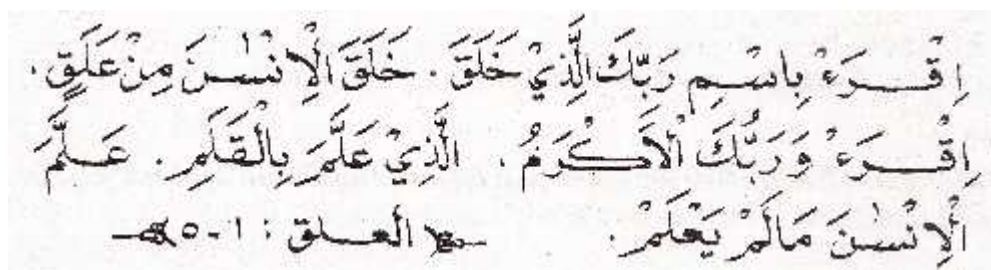 اِقْــرَءْ بِاسْــمِ رَبِّكَ الَّذِيْ خَلَقَ . خَلَقَ الْاِنْسٰنَ مِنْ عَلَقٍ .
اِقْــرَءْ وَرَبُّكَ الْاَكْرَمُ . الَّذِيْ عَلَّمَ بِالْقَلَمِ . عَــلَّمَ
الْاِنْسٰنَ مَالَمْ يَعْلَمْ . العــلق : ١-٥